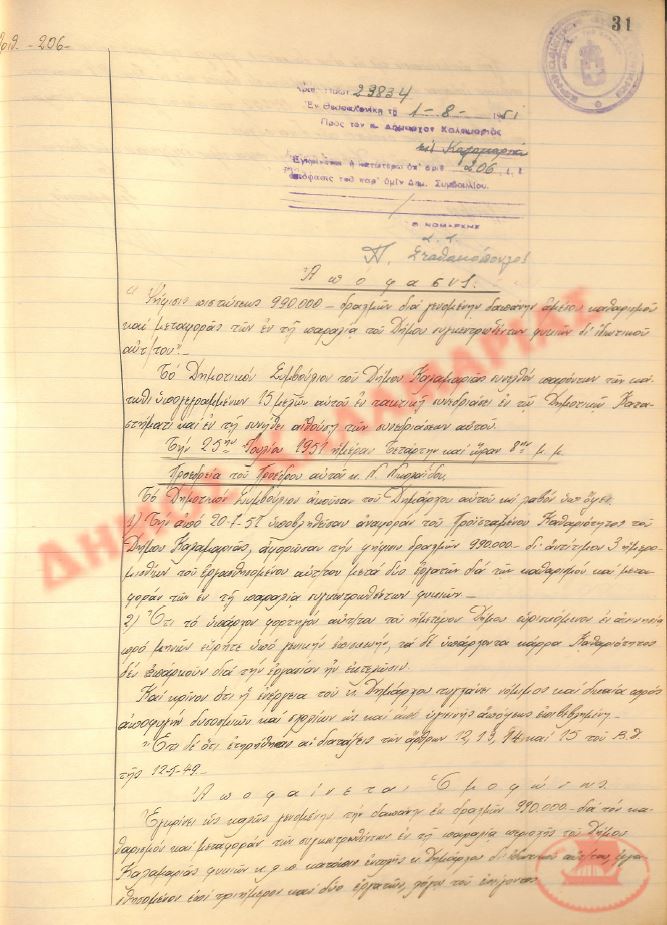 31
Ἀριθ. -206-
Ἀριθ. Πρωτ. 29834
Ἐν Θεσσαλονίκῃ τῇ 1-8-1951
Πρὸς τὸν κ. Δήμαρχον Καλαμαριᾶς
εἰς Καλαμαριά
Ἐγκρίνεται ἡ κατωτέρω ὑπ' ἀριθ 206
ἀπόφασις τοῦ παρ' ὑμῖν Δημ. Συμβουλίου.
Ο ΝΟΜΑΡΧΗΣ
Π. Σταθακόπουλος
Ἀπόφασις.
"Ψήφισις πιστώσεως 990.000- δραχμῶν διὰ γενομένην δαπάνην ἀμέσου καθαρισμοῦ
καὶ μεταφορᾶς τῶν ἐν τῇ παραλίᾳ τοῦ Δήμου συγκεντρωθέντων φυκιῶν δι' ἰδιωτικοῦ
αὐτ/του".-
Τὸ Δημοτικὸν Συμβούλιον τοῦ Δήμου Καλαμαριᾶς συνελθὸν παρόντων τῶν κά-
τωθι ὑπογεγραμμένων 15 μελῶν αὐτοῦ ἐν τακτικῇ συνεδριάσει ἐν τῷ Δημοτικῷ Κατα-
στήματι καὶ ἐν τῇ συνήθει αἰθούσῃ τῶν συνεδριάσεων αὐτοῦ.
Τὴν 25ην Ἰουλίου 1951 ἡμέραν Τετάρτην καὶ ὥραν 8ην μ.μ.
Προεδρεία τοῦ Προέδρου αὐτοῦ κ. Ν. Νικολαΐδου.
Τὸ Δημοτικὸν Συμβούλιον ἀκοῦσαν τοῦ Δημάρχου αὐτοῦ καὶ λαβὸν ὑπ' ὄψει
1) Τὴν ἀπὸ 20-7-51 ὑποβληθεῖσαν ἀναφορὰν τοῦ Προϊσταμένου Καθαριότητος τοῦ
Δήμου Καλαμαριᾶς, ἀφορῶσαν τὴν ψήφισιν δραχμῶν 990.000- δι' ἀντίτιμον 3 ἡμερο-
μισθίων τοῦ ἐργασθησομένου αὐτ/του μετὰ δύο ἐργατῶν διὰ τὸν καθαρισμὸν καὶ μετα-
φορὰν τῶν ἐν τῇ παραλίᾳ συγκεντρωθέντων φυκιῶν.-
2) Ὅτι τὸ ὑπάρχον φορτηγὸν αὐτ/τον τοῦ ἡμετέρου Δήμου εὑρισκόμενον ἐν ἀκινησίᾳ
πρὸ μηνῶν εὑρῆται ὑπὸ γενικὴν ἐπισκευήν, τὰ δὲ ὑπάρχοντα κάρρα Καθαριότητος
δὲν ἐπαρκοῦν διὰ τὴν ἐργασίαν ἣν ἐκτελοῦσιν.
Καὶ κρίνον ὅτι ἡ ἐνέργεια τοῦ κ. Δημάρχου τυγχάνει νόμιμος καὶ δικαία πρὸς
ἀποφυγὴν δυσοσμιῶν καὶ σχολίων ὡς καὶ ἀπὸ ὑγιεινῆς ἀπόψεως ἐπιβεβλημένη.-
Ἔτι δὲ ὅτι ἐτηρήθησαν αἱ διατάξεις τῶν ἄρθρων 12, 13, 14 καὶ 15 τοῦ Β.Δ.
τῆς 12-5-49.-
Ἀποφαίνεται Ὁμοφώνως.
Ἐγκρίνει ὡς καλῶς γενομένην τὴν δαπάνην ἐκ δραχμῶν 990.000- διὰ τὸν κα-
θαρισμὸν καὶ μεταφορὰν τῶν συγκεντρωθέντων ἐν τῇ παραλίᾳ περιοχῆς τοῦ Δήμου
Καλαμαριᾶς φυκιῶν κ.λ.π. κατόπιν ἐντολῆς κ. Δημάρχου δι' ἰδιωτικοῦ αὐτ/του, ἐργα-
σθησομένου ἐπὶ τριήμερον καὶ δύο ἐργατῶν, λόγῳ τοῦ ἐπείγοντος
ΔΗΜΟΣ ΚΑΛΑΜΑΡΙΑΣ